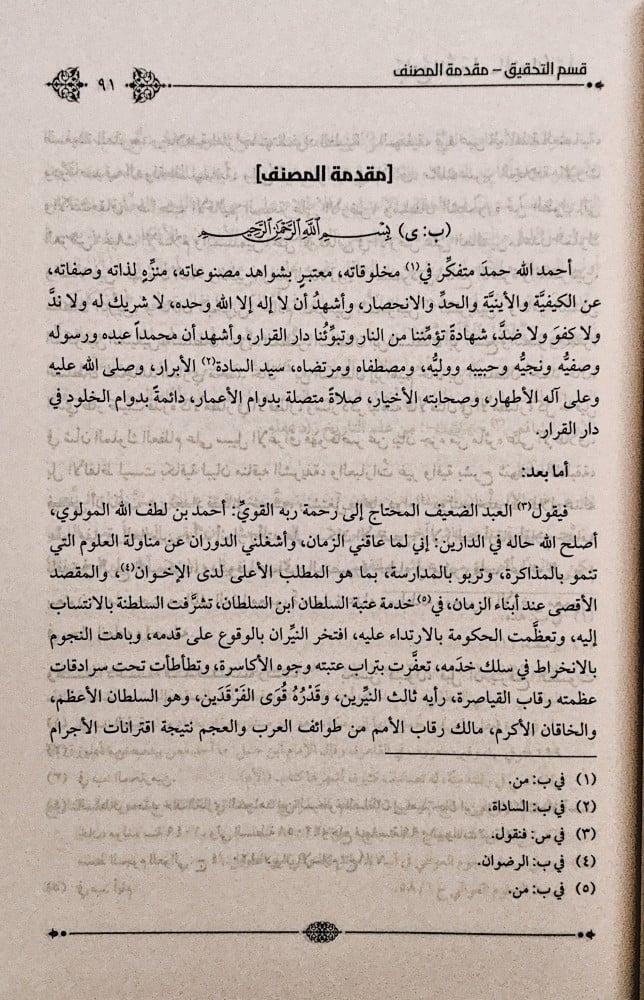 قسم التحقيق – مقدمة المصنف
٩١
[مقدمة المصنف]
(ب: ى) بِسْمِ اللَّهِ الرَّحْمَٰنِ الرَّحِيمِ
أحمد الله حمدَ متفكِّر في(١) مخلوقاته، معتبرٍ بشواهد مصنوعاته، منزِّهٍ لذاته وصفاته،
عن الكيفيَّة والأينيَّة والحدِّ والانحصار، وأشهدُ أن لا إله إلا الله وحده، لا شريك له ولا ندَّ
ولا كفوَ ولا ضدَّ، شهادةً تؤمِّننا من النار وتبوِّئُنا دار القرار، وأشهد أن محمداً عبده ورسوله
وصفيُّه ونجيُّه وحبيبه ووليُّه، ومصطفاه ومرتضاه، سيد السادة(٢) الأبرار، وصلى الله عليه
وعلى آله الأطهار، وصحابته الأخيار، صلاةً متصلة بدوام الأعمار، دائمةً بدوام الخلود في
دار القرار.
أما بعد:
فيقول(٣) العبد الضعيف المحتاج إلى رحمة ربه القويِّ: أحمد بن لطف الله المولوي،
أصلح الله حاله في الدارين: إني لما عاقني الزمان، وأشغلني الدوران عن مناولة العلوم التي
تنمو بالمذاكرة، وتربو بالمدارسة، بما هو المطلب الأعلى لدى الإخوان(٤)، والمقصد
الأقصى عند أبناء الزمان، في(٥) خدمة عتبة السلطان ابن السلطان، تشرَّفت السلطنة بالانتساب
إليه، وتعظَّمت الحكومة بالارتداء عليه، افتخر النيِّران بالوقوع على قدمه، وباهت النجوم
بالانخراط في سلك خدَمه، تعفَّرت بتراب عتبته وجوه الأكاسرة، وتطأطأت تحت سرادقات
عظمته رقاب القياصرة، رأيه ثالث النيِّرين، وقَدْرُهُ قُوَى الفَرْقَدَين، وهو السلطان الأعظم،
والخاقان الأكرم، مالك رقاب الأمم من طوائف العرب والعجم نتيجة اقترانات الأجرام
(١) في ب: من.
(٢) في ب: الساداة.
(٣) في س: فنقول.
(٤) في ب: الرضوان.
(٥) في ب: من.